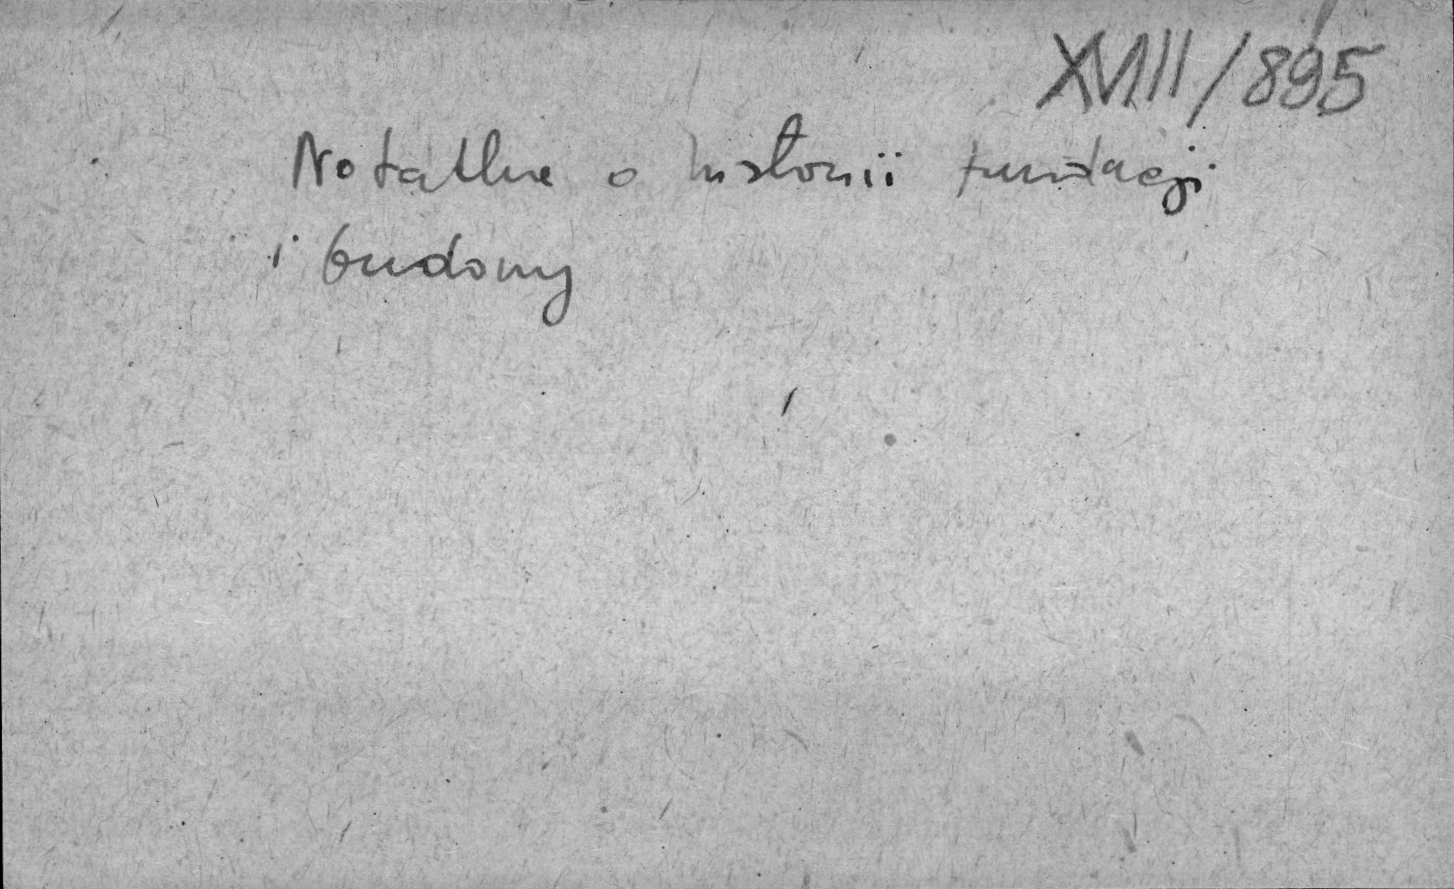 XVIII/895
Notatka o historii fundacji
i budowy